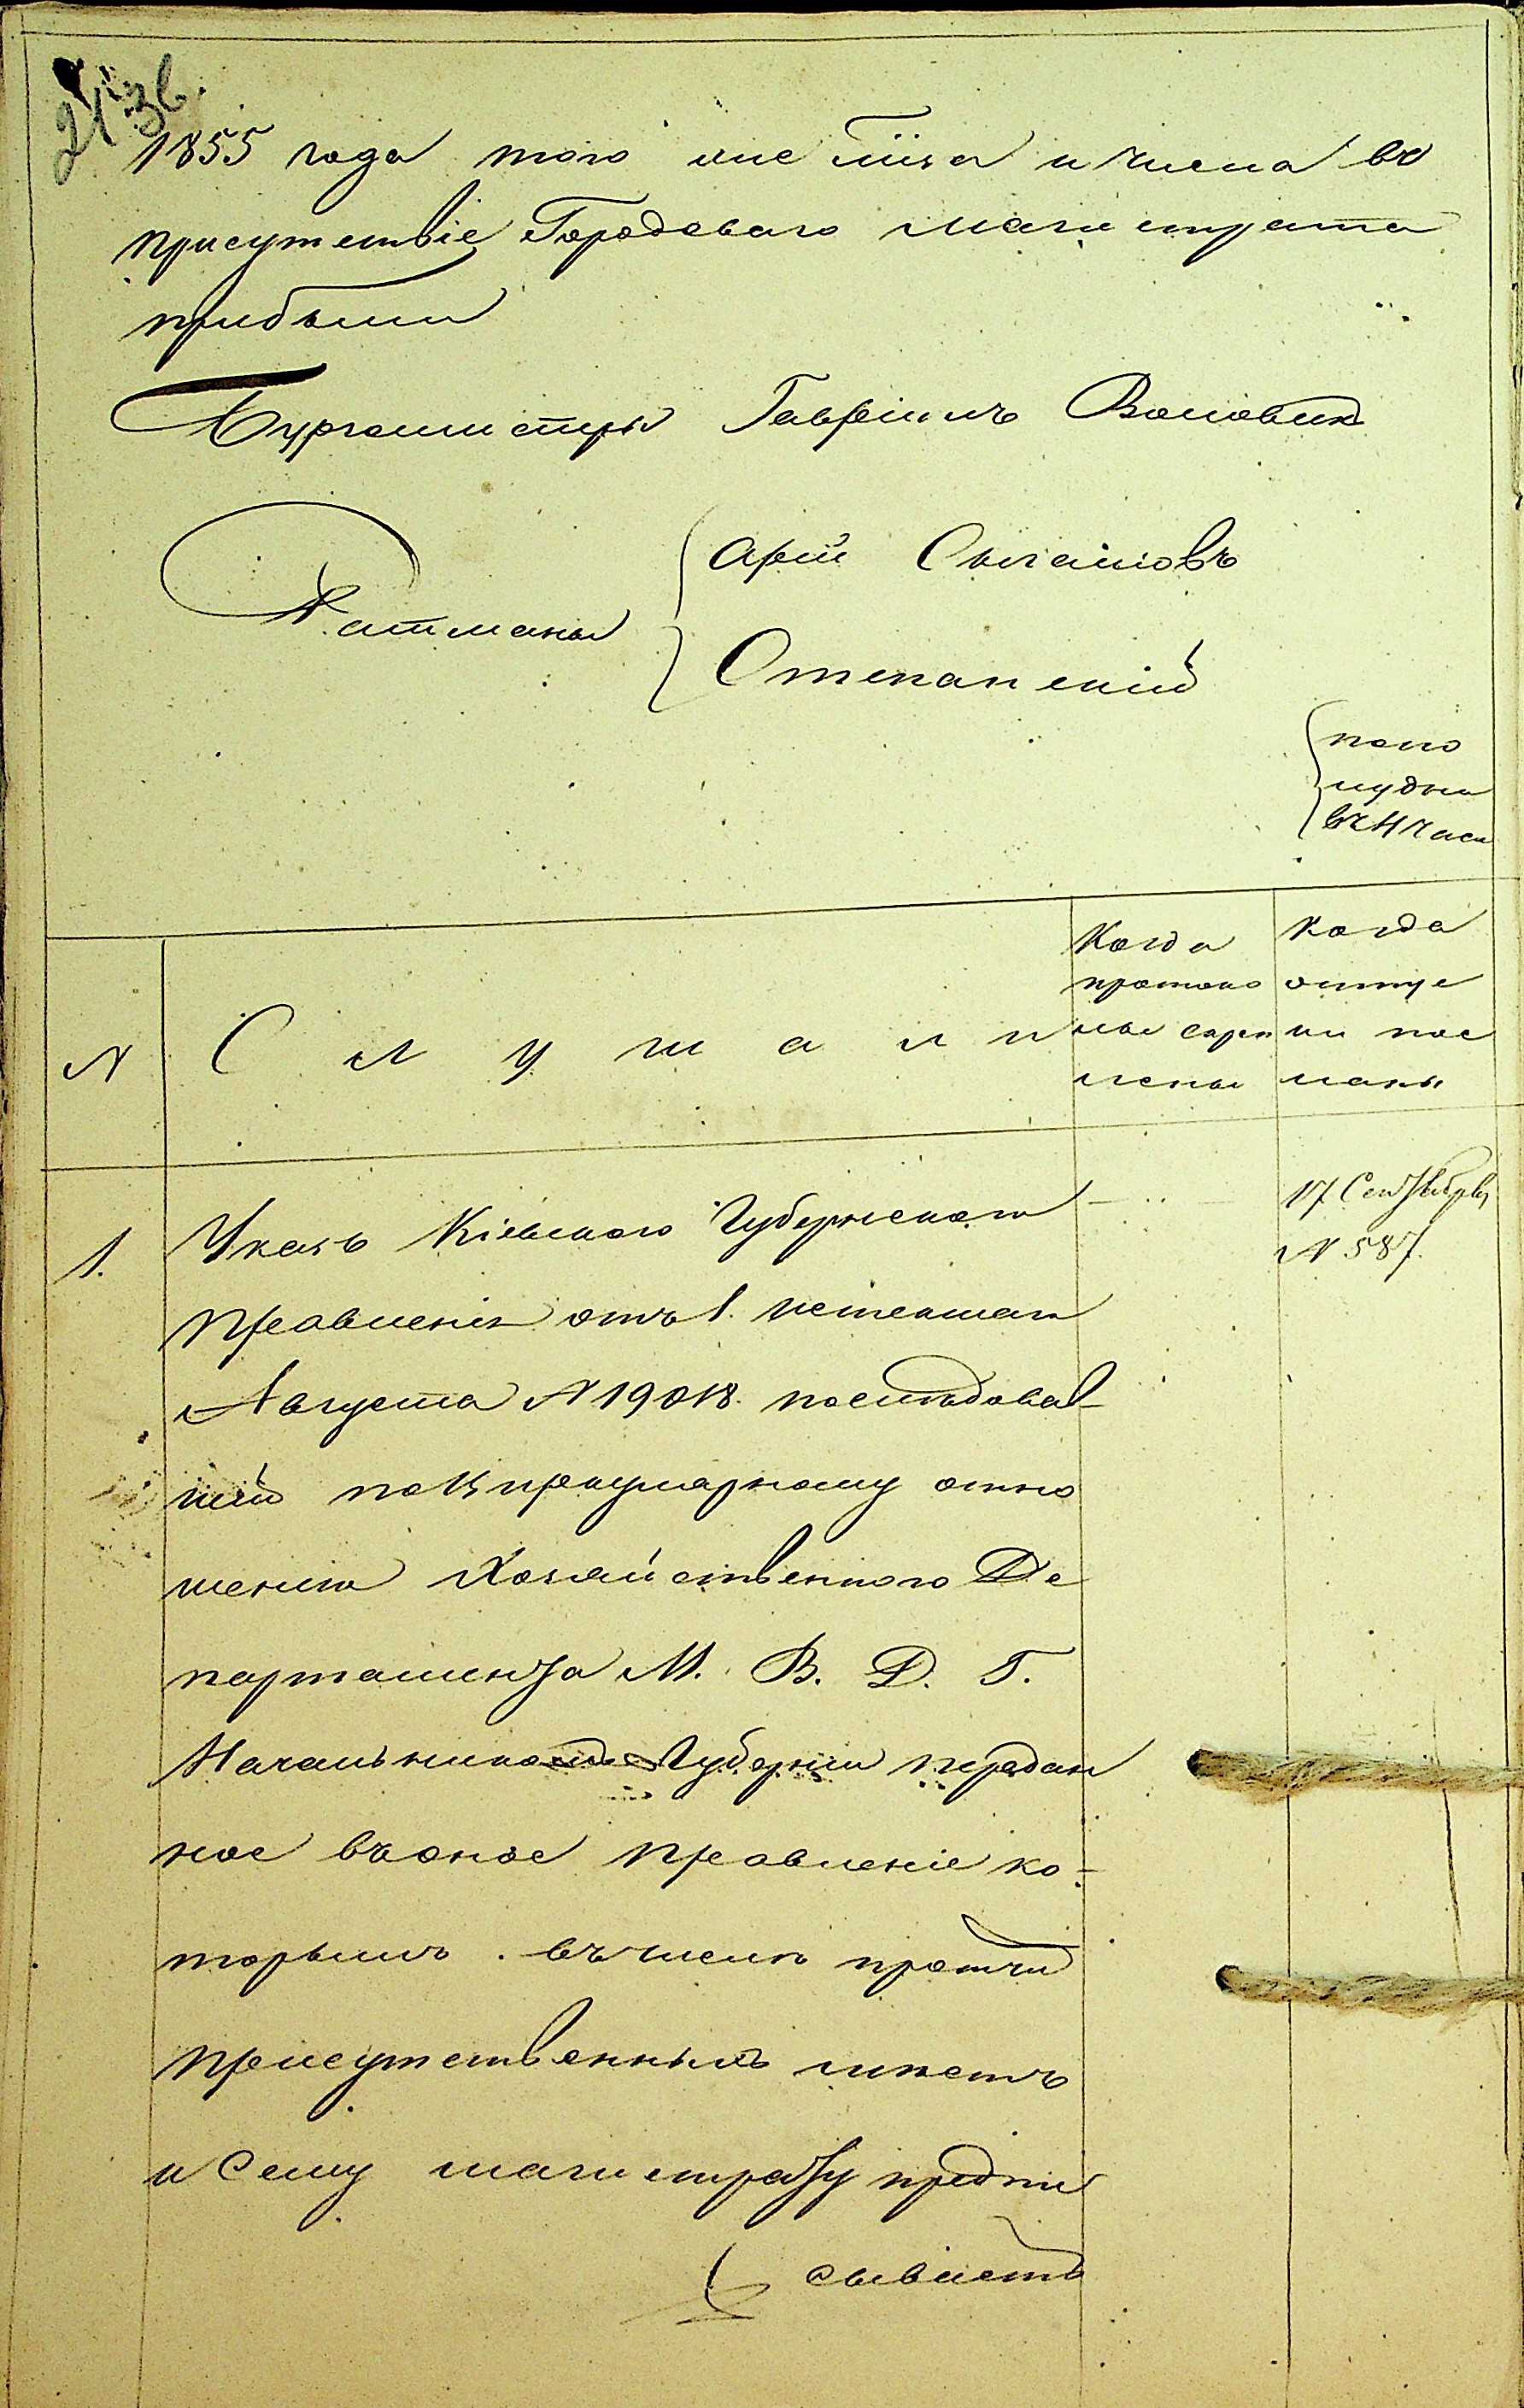 1855 года того мѣсяца и числа въ
присутствіе Городоваго магистрата
прибыли
Бургомистры Гавріилъ Воловик
Ратманы
Степанский
попо
лудни
въ 4 часа
N
Слушали
Когда
протоко
лы скрѣп
лены
Когда
отпус
ки пос
ланы
1.
Указъ Кіевского Губернского
Правленія отъ 1. истекшаго
Августа N 19018. послѣдовав-
шій по Циркулярному отно
шенію Хозяйственного Де
партамента М. В. Д. Г.
Начальником Губерніи передан
ное въ оное Правленіе ко-
торымъ въ числѣ протчи
присутственныхъ мѣстъ
и Сему магистрату предпи
сываетъ
17 Сентября
N 587.